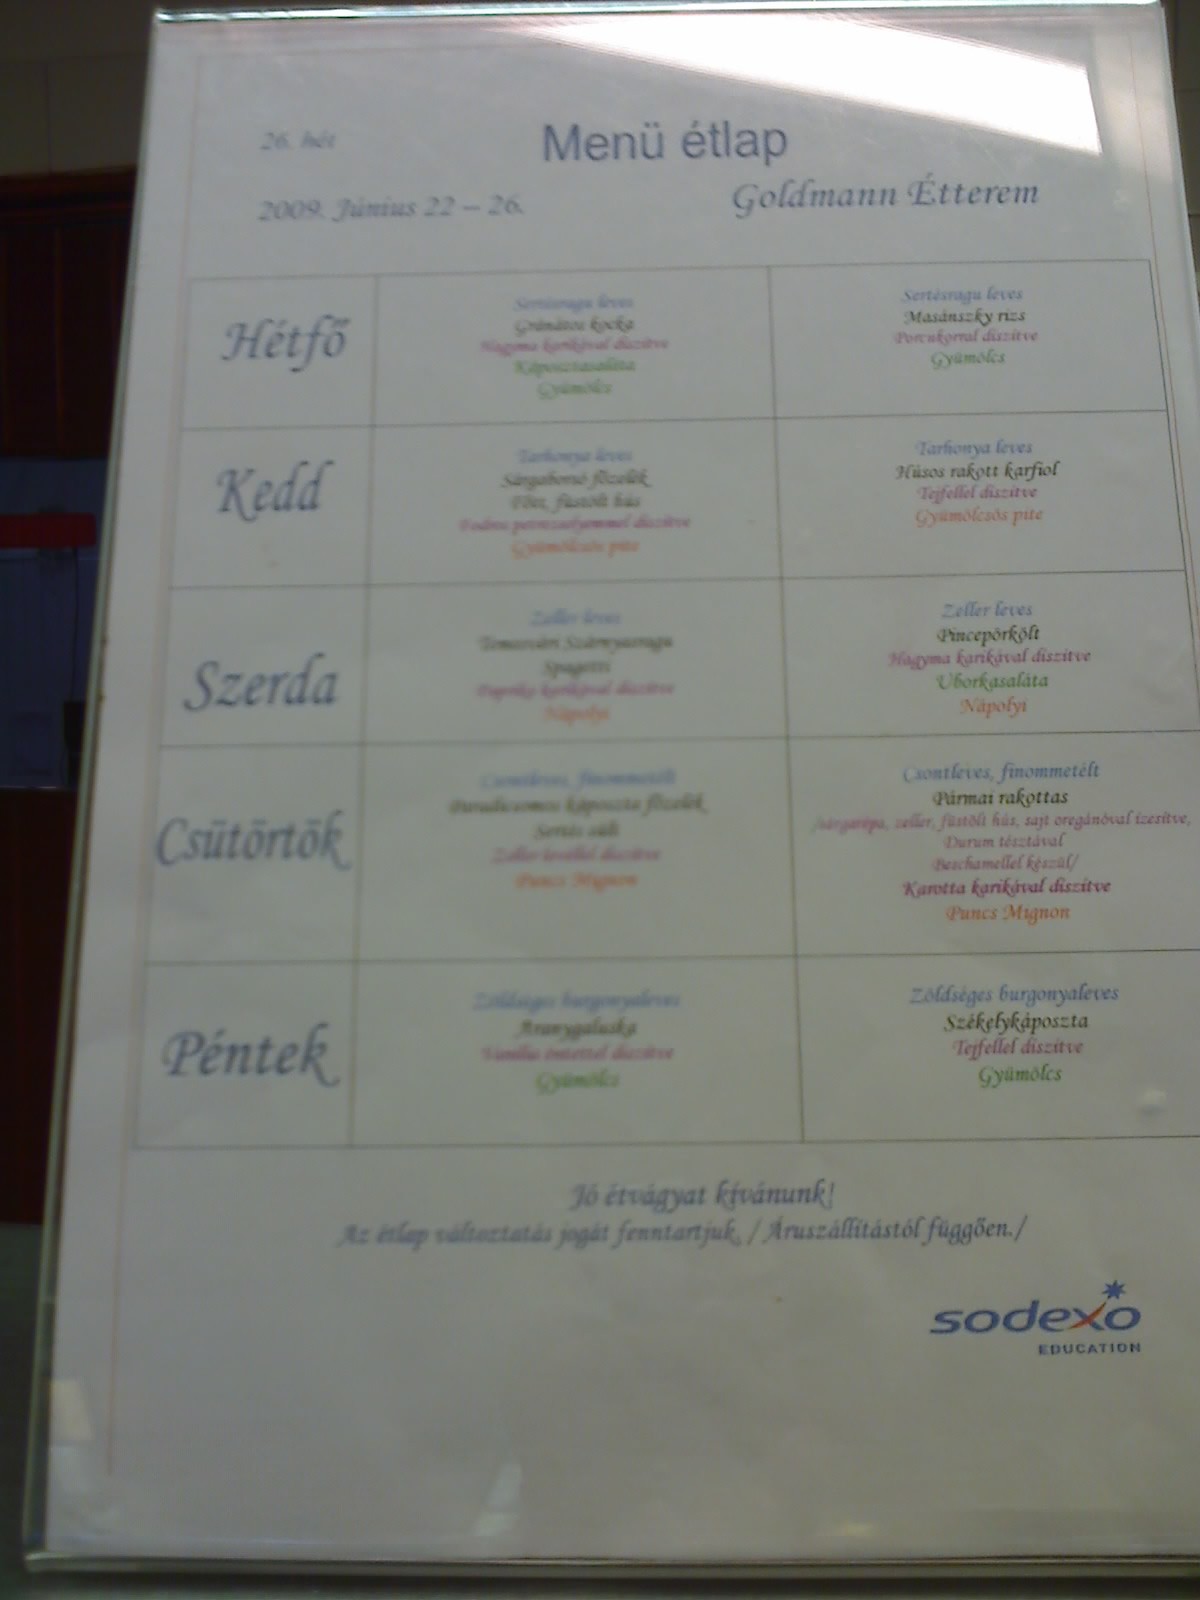 26. hét
Menü étlap
2009. Június 22 – 26.
Goldmann Étterem
Hétfő
Sertésragu leves
Gránátos kocka
Hagyma karikával díszítve
Káposztasaláta
Gyümölcs
Sertésragu leves
Masánszky rizs
Porcukorral díszítve
Gyümölcs
Kedd
Tarhonya leves
Sárgaborsó főzelék
Főtt, füstölt hús
Fodros petrezselyemmel díszítve
Gyümölcsös pite
Tarhonya leves
Húsos rakott karfiol
Tejfellel díszítve
Gyümölcsös pite
Szerda
Zeller leves
Temesvári Szárnyasragu
Spagetti
Paprika karikával díszítve
Nápolyi
Zeller leves
Pincepörkölt
Hagyma karikával díszítve
Uborkasaláta
Nápolyi
Csütörtök
Csontleves, finommetélt
Paradicsomos káposzta főzelék
Sertés sült
Zeller levéllel díszítve
Puncs Mignon
Csontleves, finommetélt
Pármai rakottas
/sárgarépa, zeller, füstölt hús, sajt oregánóval ízesítve,
Durum tésztával
Beschamellel készül/
Karotta karikával díszítve
Puncs Mignon
Péntek
Zöldséges burgonyaleves
Aranygaluska
Vanília öntettel díszítve
Gyümölcs
Zöldséges burgonyaleves
Székelykáposzta
Tejfellel díszítve
Gyümölcs
Jó étvágyat kívánunk!
Az étlap változtatás jogát fenntartjuk. / Áruszállítástól függően./
sodexo
EDUCATION